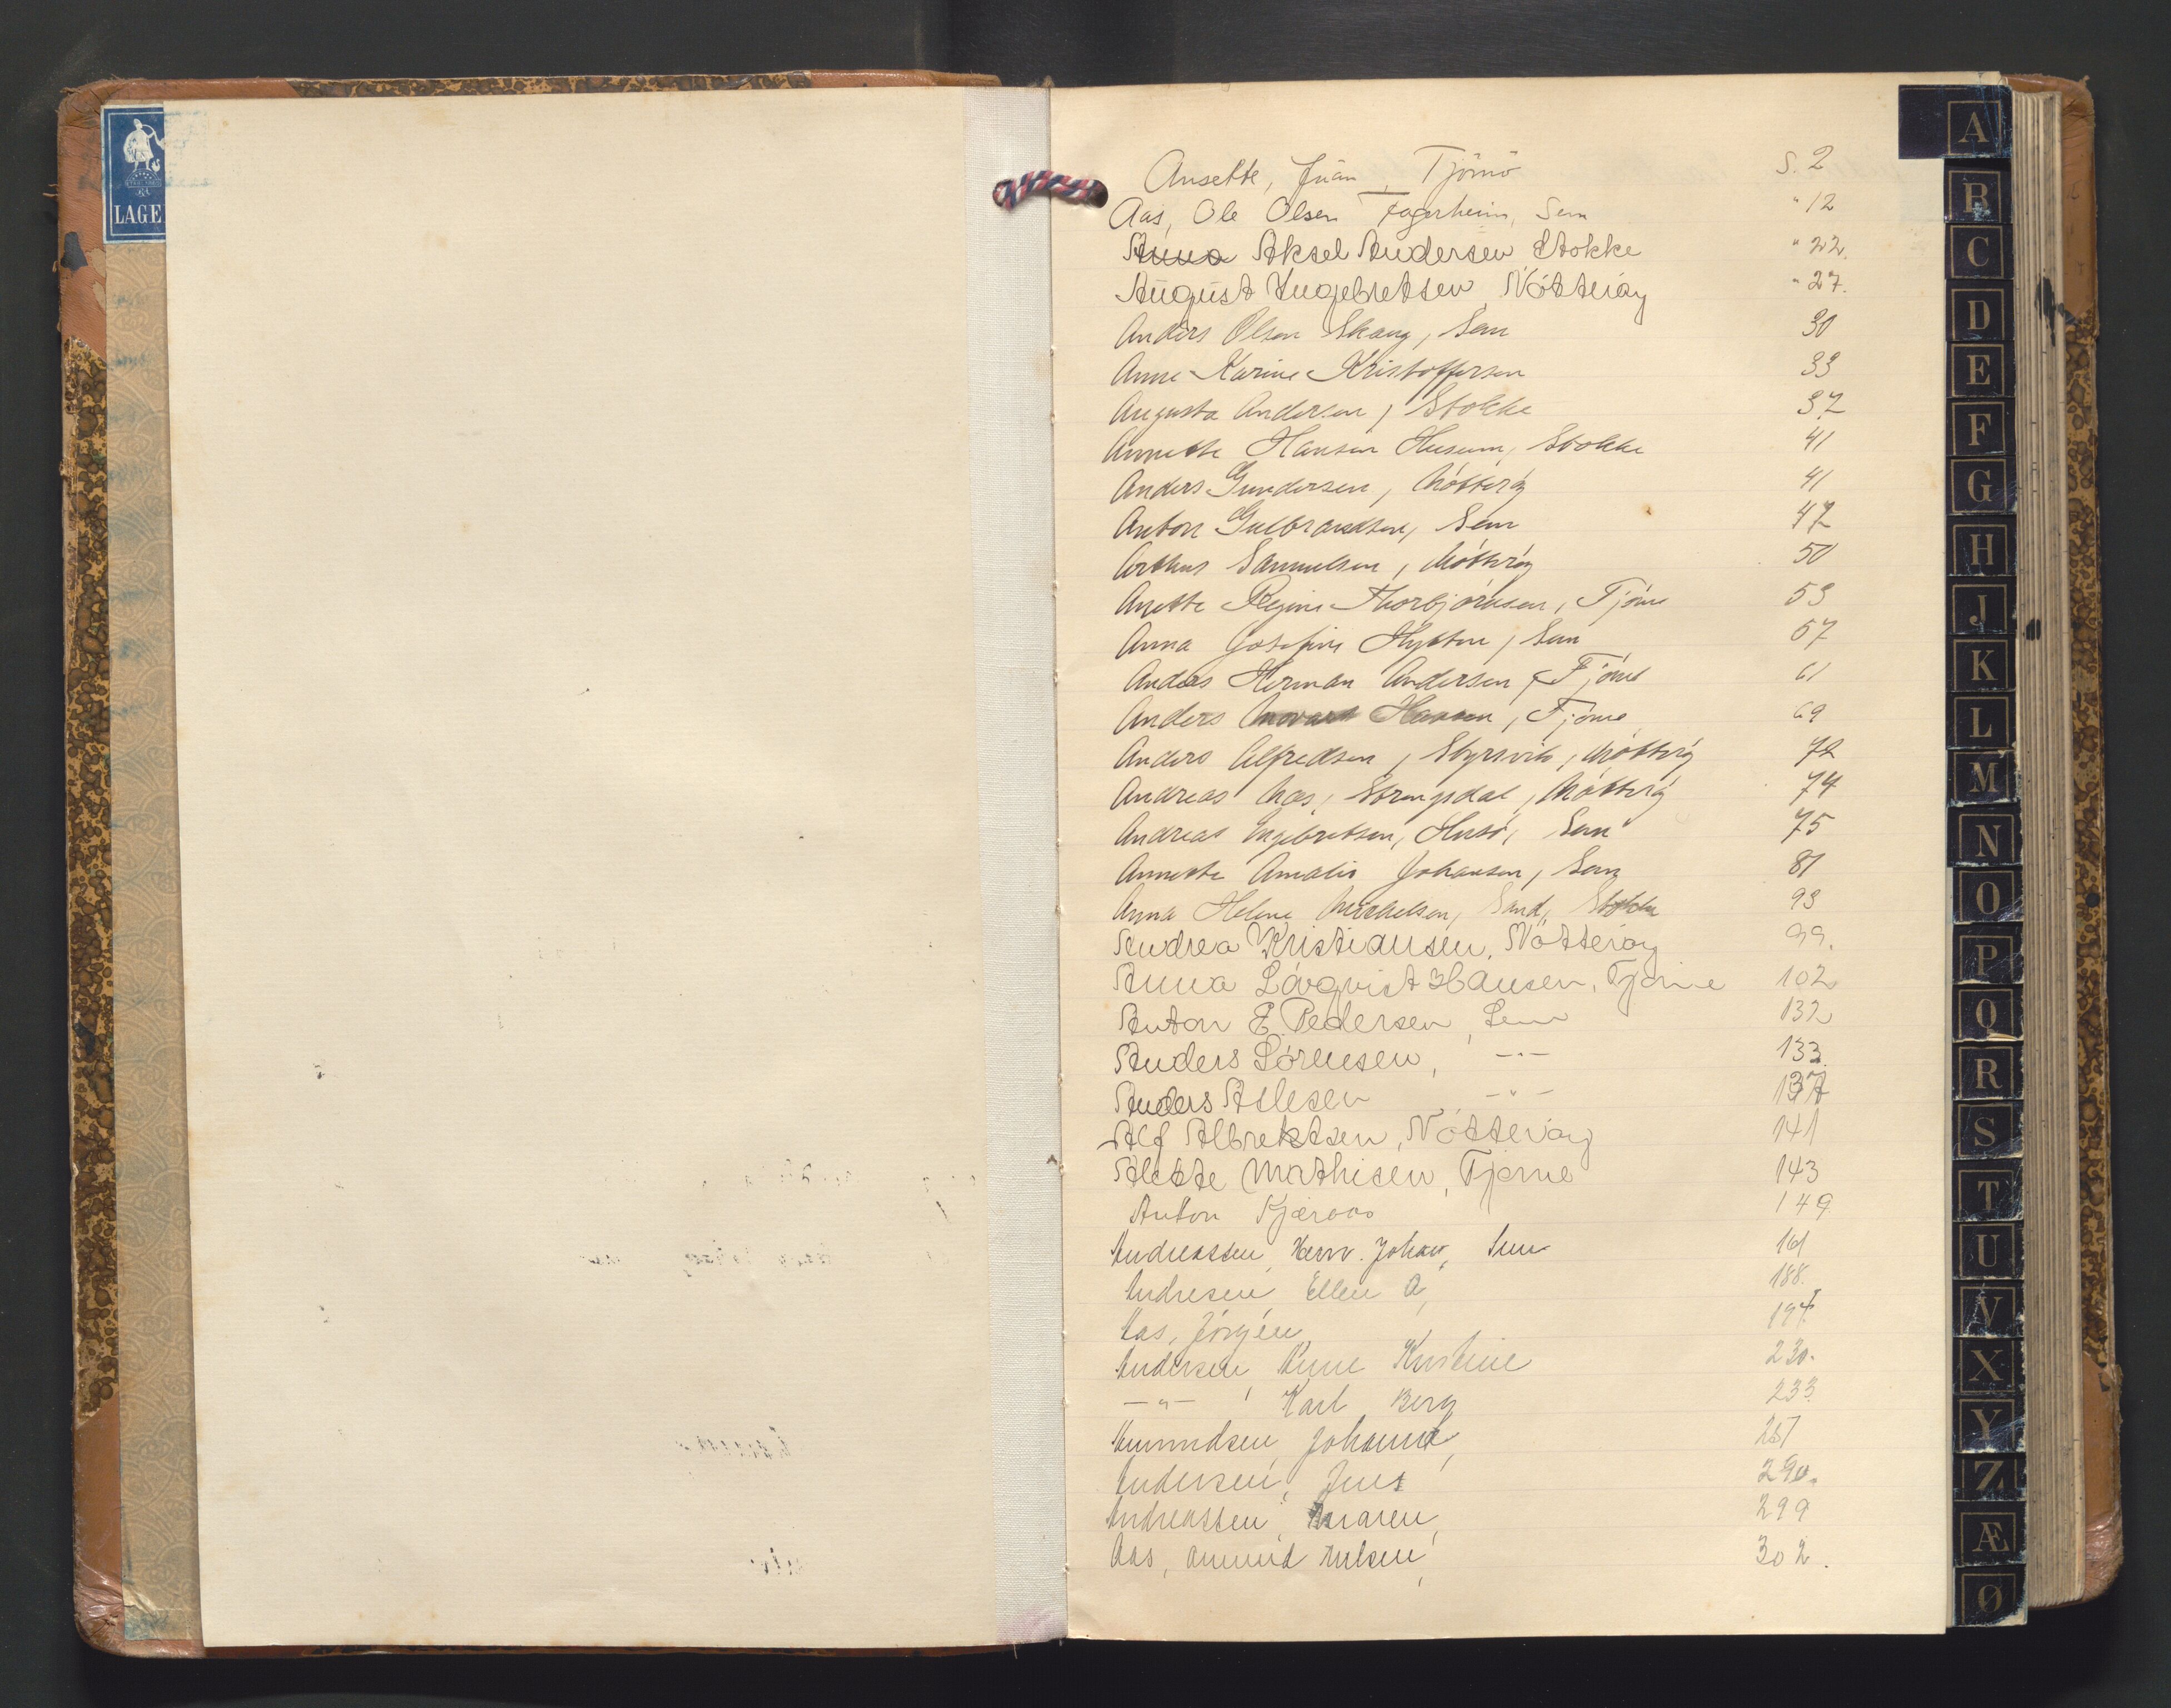 LAGE
Ansette, Juan, Tjömö S. 2
Aas, Ole Olsen Fagerheim, Sem " 12
Anna Aksel Andersen Stokke " 22.
August Ingebretsen, Nötteröy " 27.
Anders Olsen Skaug, Sem 30
Anne Karine Kristoffersen 33
Augusta Andersen, Stokke 37
Annette Hansen Husum, Stokke 41
Anders Gundersen, Nötteröy 41
Anton Gulbrandsen, Sem 47
Arthur Samuelsen, Nötteröy 50
Anette Regine Thorbjörnsen, Tjöme 53
Anna Josefine Hytten, Sem 57
Anders Herman Andersen, Tjöme 61
Anders Hansen, Tjöme 69
Anders Alfredsen, Styrsvik, Nötteröy 72
Andreas Næs, Strengsdal, Nötteröy 74
Andreas Ingebretsen, Husö, Sem 75
Annette Amalie Johansen, Sem 81
Anna Helene Mikkelsen, Sand, Stokke 93
Andrea Kristiansen, Nötteröy 99.
Anna Lövqvist Hansen, Tjöme 102
Anton E. Pedersen, Sem 132
Anders Sörensen, —"— 133
Anders Aslesen —"— 137
Alf Albrektsen, Nötteröy 141
Alette Mathisen, Tjöme 143
Anton Kjæraas 149
Andreassen, Herm. Johan, Sem 161
Andresen, Ellen A, 188.
Aas, Jörgen, 197
Andersen Anne Kristine 230.
—"— , Karl Berg 233
Amundsen, Johanna, 267
Andersen, Jens 290.
Andreassen, Maren, 299
Aas, Amund Nilsen, 302.
A
B
C
D
E
F
G
H
J
K
L
M
N
O
P
Q
R
S
T
U
V
X
Y
Z
Æ
Ø